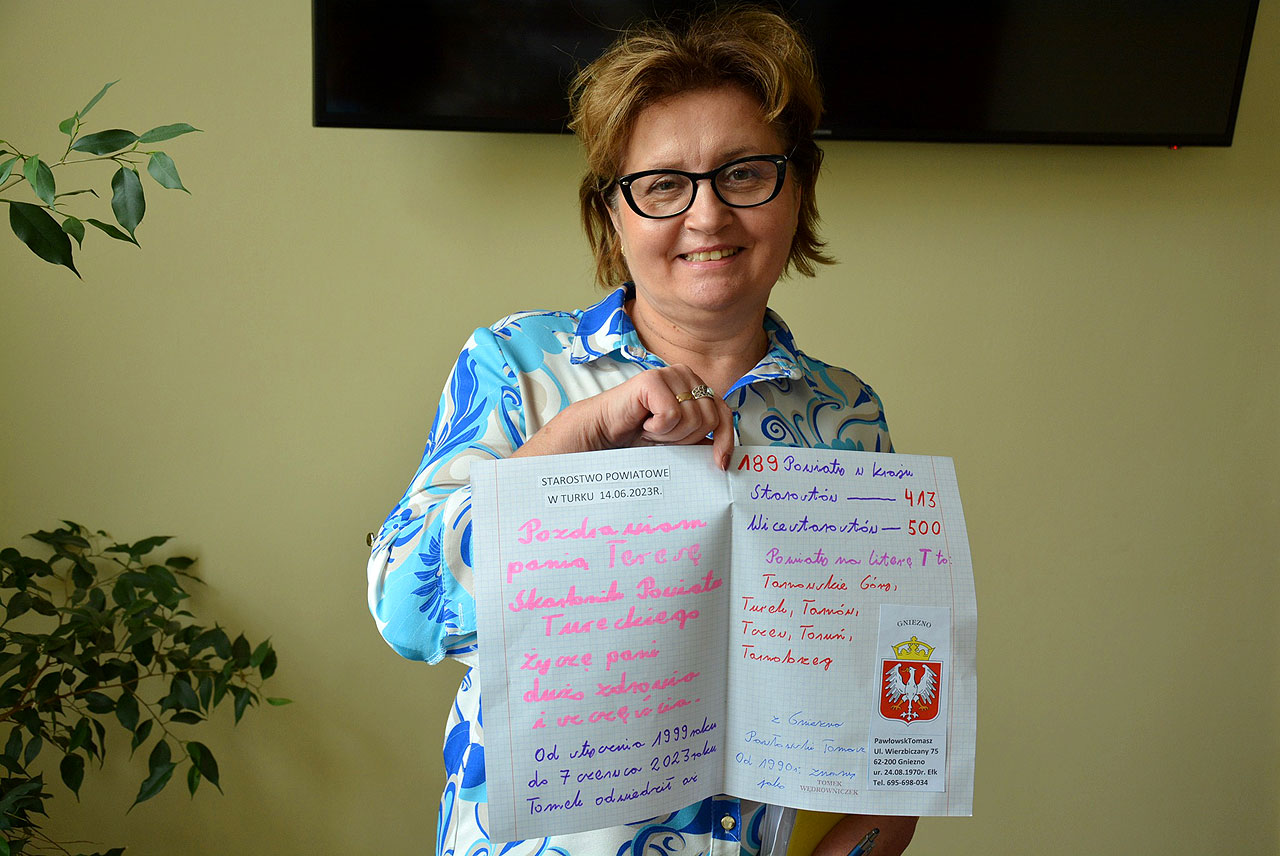 STAROSTWO POWIATOWE
W TURKU 14.06.2023R.
Pozdrawiam
panią Teresę
Skarbnik Powiatu
Tureckiego
życzę pani
dużo zdrowia
i szczęścia.
Od stycznia 1999 roku
do 7 czerwca 2023 roku
Tomek odwiedził aż
189 Powiatów w kraju
Starostów — 413
Wicestarostów — 500
Powiaty na literę T to:
Tarnowskie Góry,
Turek, Tarnów,
Tczew, Toruń,
Tarnobrzeg
z Gniezna
Pawłowski Tomasz
Od 1990r. znany
jako TOMEK
WĘDROWNICZEK
GNIEZNO
PawłowskTomasz
Ul. Wierzbiczany 75
62-200 Gniezno
ur. 24.08.1970r. Ełk
Tel. 695-698-034